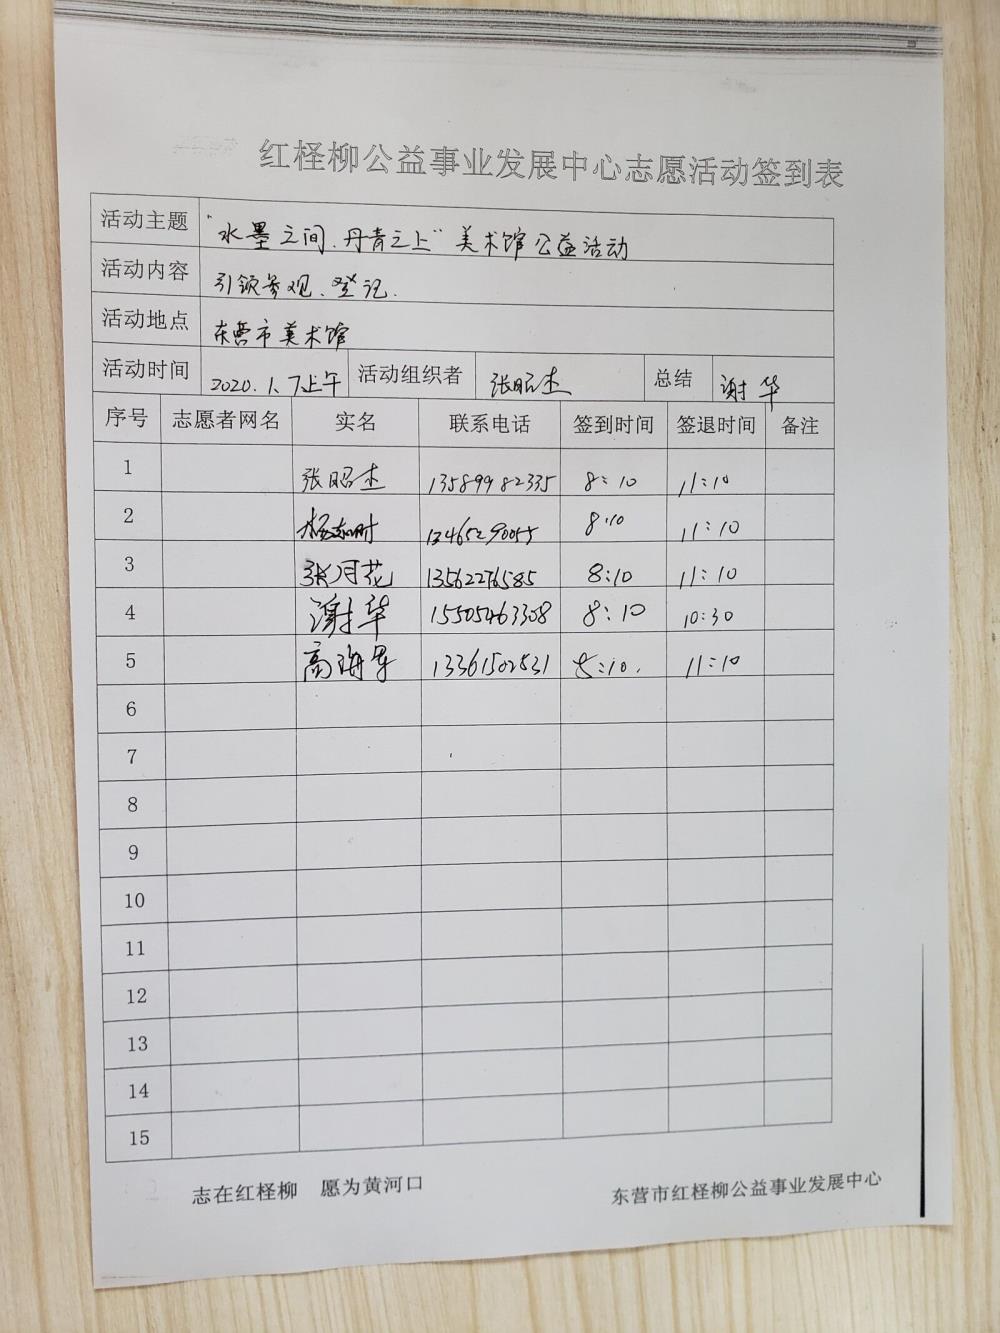 红柽柳公益事业发展中心志愿活动签到表
活动主题 "水墨之间、丹青之上"美术馆公益活动
活动内容 引领参观、登记.
活动地点 东营市美术馆
活动时间 2020.1.7上午 活动组织者 张昭杰 总结 谢华
序号 志愿者网名 实名 联系电话 签到时间 签退时间 备注
1 张昭杰 13589982335 8:10 11:10
2 13465290055 8:10 11:10
3 张月花 13562276585 8:10 11:10
4 谢华 15505463308 8:10 10:30
5 高海军 13361502831 8:10. 11:10
6
7
8
9
10
11
12
13
14
15
志在红柽柳 愿为黄河口 东营市红柽柳公益事业发展中心